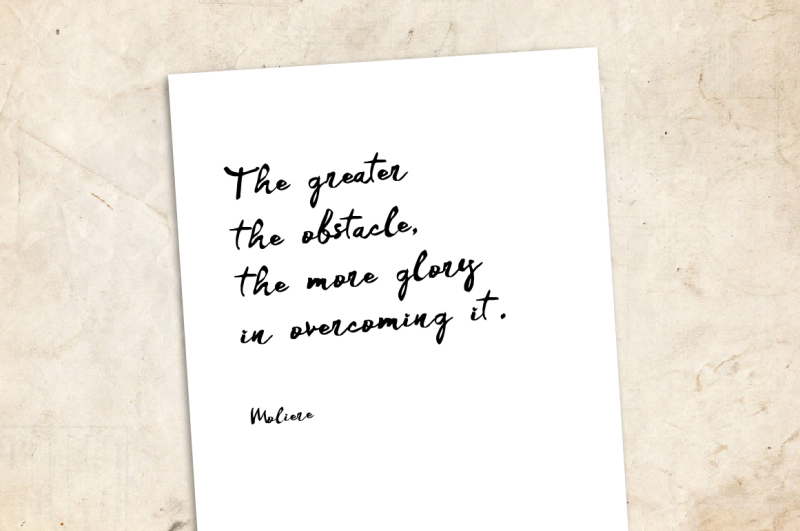 The greater
the obstacle,
the more glory
in overcoming it.
Moliere